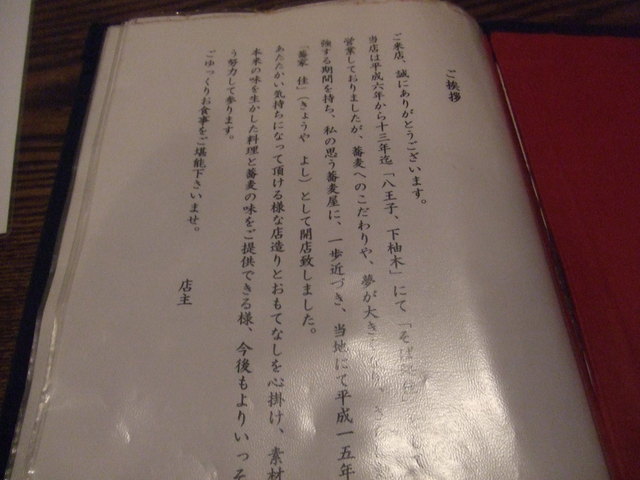 ご挨拶
ご来店、誠にありがとうございます。
当店は平成六年から十三年迄「八王子、下柚木」にて「そば
営業しておりましたが、蕎麦へのこだわりや、夢が大き
強する期間を持ち、私の思う蕎麦屋に、一歩近づき、当地にて平成一五年
「蕎家 佳」（きょうや よし）として開店致しました。
あたたかい気持ちになって頂ける様な店造りとおもてなしを心掛け、素材
本来の味を生かした料理と蕎麦の味をご提供できる様、今後もよりいっそ
う努力して参ります。
ごゆっくりお食事をご堪能下さいませ。
店主